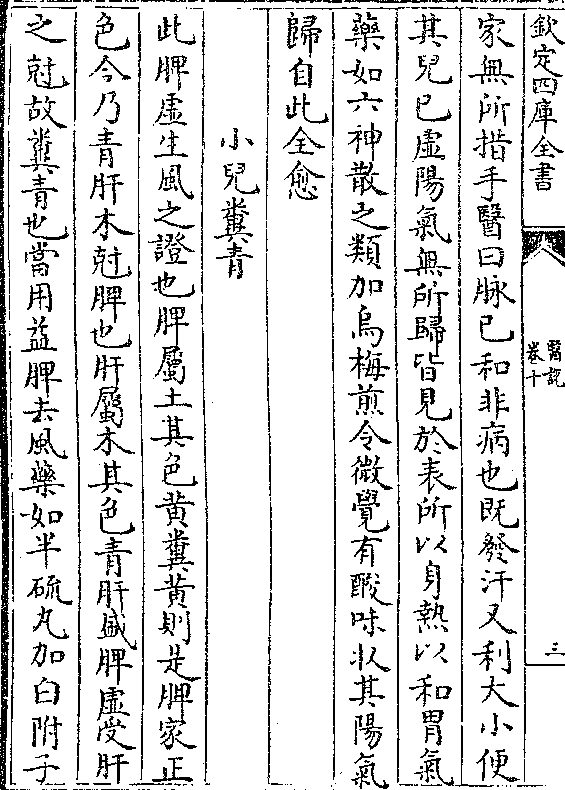 欽定四庫全書
醫說
卷十
三
家無所措手醫曰脉已和非病也既發汗又利大小便
其兒已虛陽氣無所歸皆見於表所以身熱以和胃氣
藥如六神散之類加烏梅煎令微覺有酸味收其陽氣
歸自此全愈
小兒糞青
此脾虛生風之證也脾屬土其色黄糞黄則是脾家正
色今乃青肝木尅脾也肝屬木其色青肝盛脾虛受肝
之尅故糞青也當用益脾去風藥如半硫丸加白附子